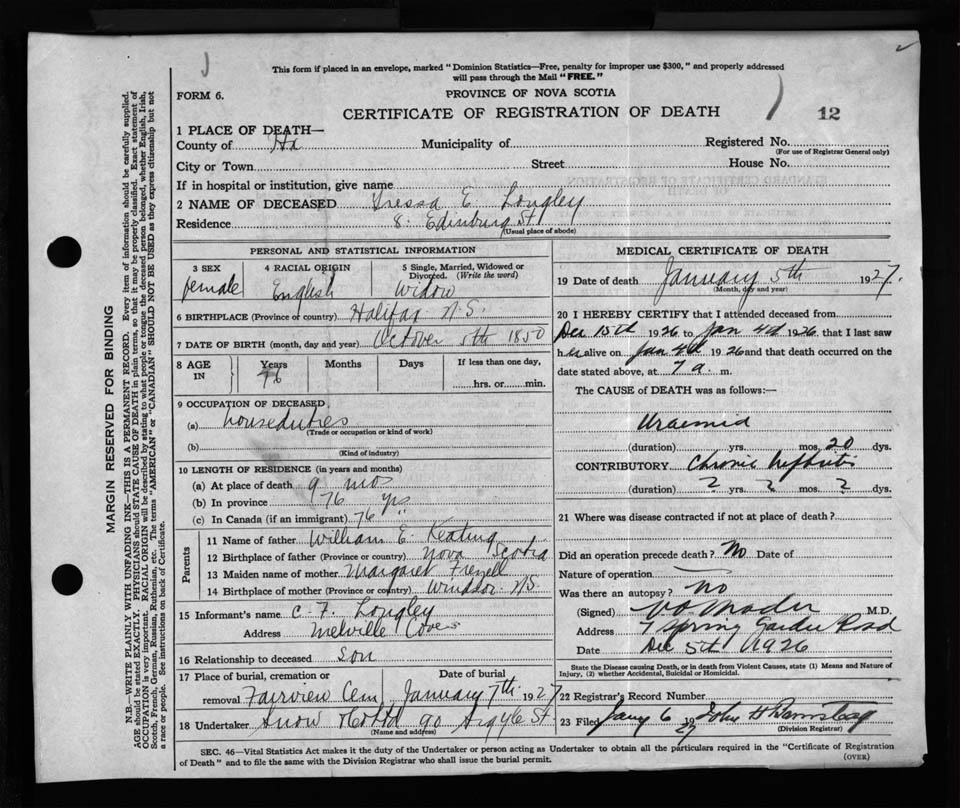 This form if placed in an envelope, marked "Dominion Statistics—Free, penalty for improper use $300," and properly addressed
will pass through the Mail "FREE."
FORM 6.
PROVINCE OF NOVA SCOTIA
CERTIFICATE OF REGISTRATION OF DEATH
12
1 PLACE OF DEATH—
County of Hx Municipality of Registered No.
(For use of Registrar General only)
City or Town Street House No.
If in hospital or institution, give name
2 NAME OF DECEASED Tressa E Longley
Residence 8 Edinburg St
(Usual place of abode)
PERSONAL AND STATISTICAL INFORMATION
3 SEX
female
4 RACIAL ORIGIN
English
5 Single, Married, Widowed or
Divorced. (Write the word)
Widow
6 BIRTHPLACE (Province or country) Halifax N.S.
7 DATE OF BIRTH (month, day and year) October 5th 1850
8 AGE IN Years Months Days If less than one day,
76 hrs. or min.
9 OCCUPATION OF DECEASED
(a) houseduties
(Trade or occupation or kind of work)
(b)
(Kind of industry)
10 LENGTH OF RESIDENCE (in years and months)
(a) At place of death 9 mos
(b) In province 76 yrs
(c) In Canada (if an immigrant) 76
Parents
11 Name of father William E. Keating
12 Birthplace of father (Province or country) Nova Scotia
13 Maiden name of mother Margaret
14 Birthplace of mother (Province or country) Windsor N.S.
15 Informant's name C. F. Longley
Address Melville Cove
16 Relationship to deceased son
17 Place of burial, cremation or Date of burial
removal Fairview Cem January 7th 1927
18 Undertaker Snow & Co Ltd 90 Argyle St.
(Name and address)
MEDICAL CERTIFICATE OF DEATH
19 Date of death January 5th 1927.
(Month, day and year)
20 I HEREBY CERTIFY that I attended deceased from
Dec 15th 1926 to Jan 4th 1926, that I last saw
her alive on Jan 4th 1926 and that death occurred on the
date stated above, at 7 a. m.
The CAUSE of DEATH was as follows:—
Uraemia
(duration) yrs. mos. 20 dys.
CONTRIBUTORY Chronic Nephritis
(duration) ? yrs. ? mos. ? dys.
21 Where was disease contracted if not at place of death?
Did an operation precede death? No Date of
Nature of operation
Was there an autopsy? No
(Signed) V O Mader M.D.
Address 7 Spring Garden Road
Date Dec 5th 1926
State the Disease causing Death, or in death from Violent Causes, state (1) Means and Nature of
Injury, (2) whether Accidental, Suicidal or Homicidal.
22 Registrar's Record Number
23 Filed Jany 6 1927 John H
(Division Registrar)
SEC. 46—Vital Statistics Act makes it the duty of the Undertaker or person acting as Undertaker to obtain all the particulars required in the "Certificate of Registration
of Death" and to file the same with the Division Registrar who shall issue the burial permit.
(OVER)
MARGIN RESERVED FOR BINDING
N.B.—WRITE PLAINLY WITH UNFADING INK—THIS IS A PERMANENT RECORD. Every item of information should be carefully supplied.
AGE should be stated EXACTLY. PHYSICIANS should STATE CAUSE OF DEATH in plain terms, so that it may be properly classified. Exact statement of
OCCUPATION is very important. RACIAL ORIGIN will be described by stating to what people or tongue the deceased person belonged, whether English, Irish,
Scotch, French, German, Russian, Ruthenian, etc. The terms "AMERICAN" or "CANADIAN" SHOULD NOT BE USED as they express citizenship but not
a race or people. See instructions on back of Certificate.